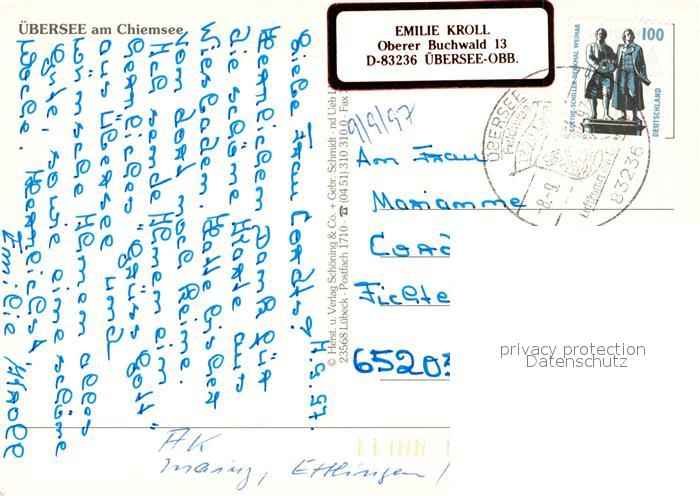 ÜBERSEE am Chiemsee
EMILIE KROLL
Oberer Buchwald 13
D-83236 ÜBERSEE-OBB.
100
GOETHE-SCHILLER-DENKMAL WEIMAR
DEUTSCHLAND
ÜBERSEE
83236
9/9/97
4.9.97.
Liebe Frau Cordts!
Herzlichen Dank für
die schöne Karte aus
Wiesbaden. Hatte bisher
von dort noch keine.
Ich sende Ihnen ein
herzliches "Grüss Gott"
aus Übersee und
wünsche Ihnen alles
Gute, sowie eine schöne
Woche. Herzlichst
Emilie Kroll
© Herst. u. Verlag Schöning & Co. + Gebr. Schmidt
23568 Lübeck · Postfach 1710 · ☎ (04 51) 310 310
An Frau
Marianne
Fichte
65203
privacy protection
Datenschutz
AK
Mainz, Ettlingen